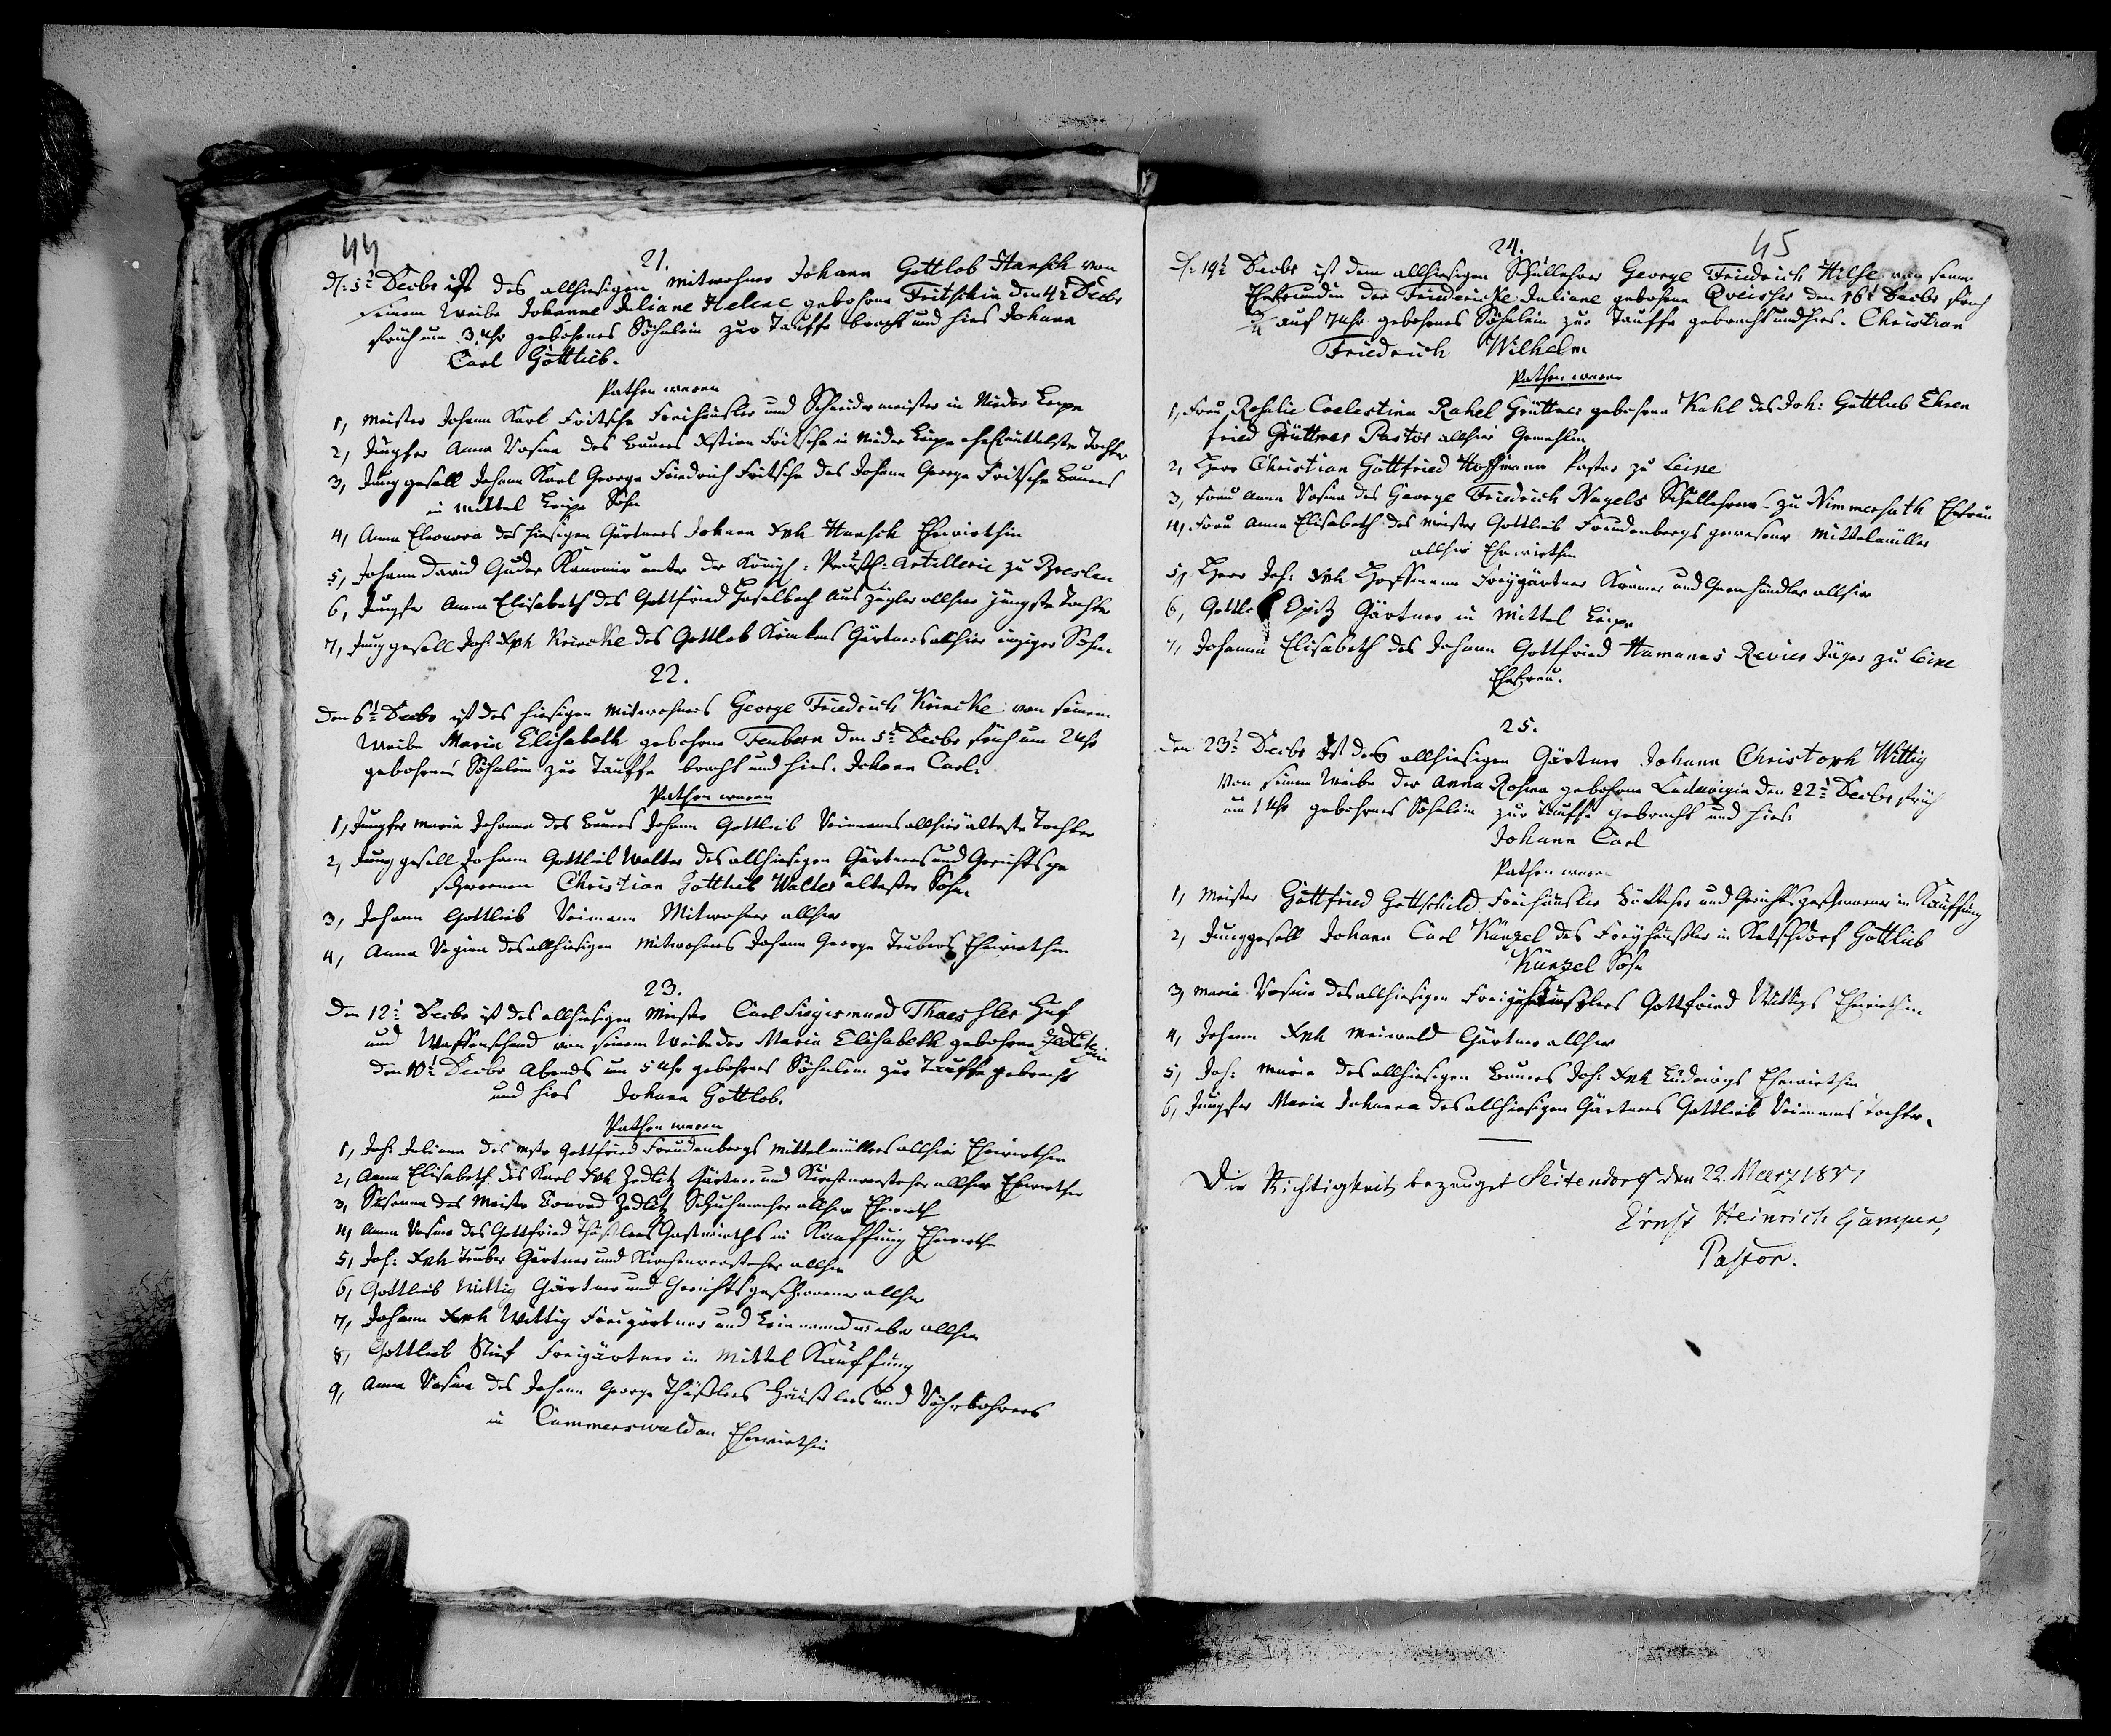 44
21.
d. 5t Decbr ist des allhiesigen Mitwohner Johann Gottlob Hansch von
seinem Weibe Johanne Juliane Helene gebohrne Fritschin den 4t Decbr
früh um 3 Uhr gebohrnes Söhnlein zur Tauffe bracht und hies Johann
Carl Gottlieb.
Pathen waren
1, Meister Johann Karl Fritsche Freihäusler und Schneidermeister in Nieder Leipe
2, Jungfer Anna Rosina des Bauers Xstian Fritsche in Nieder Leipe ehel. mittelste Tochter
3, Junggesell Johann Karl George Friedrich Fritsche des Johann George Fritsche Bauers
in Mittel Leipe Sohn
4, Anna Eleonora des hiesigen Gärtners Johann Xph Hansch Ehewirthin
5, Johann David Guder Kanonier unter der Königl: Preuß: Artillerie zu Breslau
6, Jungfer Anna Elisabeth des Gottfried Haselbach Auszügler allhier jüngste Tochter
7, Junggesell Joh: Xph Reincke des Gottlob Reinkens Gärtners allhier einziger Sohn
22.
den 6t Decbr ist des hiesigen Mitwohners George Friedrich Reincke von seinem
Weibe Maria Elisabeth gebohrne Teubern den 5t Decbr früh um 2 Uhr
gebohrnes Söhnlein zur Tauffe bracht und hies. Johann Carl.
Pathen waren
1, Jungfer Maria Johanna des Bauers Johann Gottlieb Reimanns allhier älteste Tochter
2, Junggesell Johann Gottlieb Walter des allhiesigen Gärtners und Gerichtsge
schwornen Christian Gottlieb Walter ältester Sohn
3, Johann Gottlieb Reimann Mitwohner allhier
4, Anna Regina des allhiesigen Mitwohners Johann George Teubers Ehewirthin
23.
Den 12t Decbr ist des allhiesigen Meister Carl Siegismund Thaeshler Huf
und Waffenschmid von seinem Weibe der Maria Elisabeth gebohrne Zedlitzin
den 10t Decbr Abends um 5 Uhr gebohrnes Söhnlein zur Tauffe gebracht
und hies Johann Gottlob.
Pathen waren
1, Joh: Juliana des Mstr Gottfried Freudenbergs Mittelmüllers allhier Ehewirthin
2, Anna Elisabeth des Karl Xph Zedlitz Gärtner und Kirchenvorsteher allhier Ehewirthin
3, Susanna des Meister Conrad Zedlitz Schuhmacher allhier Ehewirth
4, Anna Rosina des Gottfried Thäßlers Gastwirths in Kauffung Ehewirth
5, Joh: Xph Teuber Gärtner und Kirchenvorsteher allhier
6, Gottlieb Wittig Gärtner und Gerichtsgeschworner allhier
7, Johann Xph Wittig Freigärtner und Leinwandweber allhier
8, Gottlieb Stief Freigärtner in Mittel Kauffung
9, Anna Rosina des Johann George Thäßlers Häußlers und Röhrbohrers
in Cammerswaldau Ehewirthin
45
24.
d. 19t Decbr ist dem allhiesigen Schullehrer George Friedrich Hilse von seiner
Ehefreundin der Friedericke Juliane gebohrne den 16t Decbr früh
auf 7 Uhr gebohrnes Söhnlein zur Tauffe gebracht und hies. Christian
Friedrich Wilhelm
Pathen waren
1, Frau Rosalie Coelestine Rahel Grüttner gebohrne Kahl des Joh: Gottlieb Ehren
fried Grüttner Pastor allhier Gemahlin
2, Herr Christian Gottfried Hoffmann Pastor zu Leipe
3, Frau Anna Rosina des George Friedrich Nagels Schullehrer zu Nimmersath Ehefrau
4, Frau Anna Elisabeth des Meister Gottlieb Freudenbergs gewesener Mittelmüller
allhier Ehewirthin
5, Herr Joh: Xph Hoffmann Freygärtner Kramer und Garnhändler allhier
6, Opitz Gärtner in Mittel Leipe
7, Johanna Elisabeth des Johann Gottfried Hamanns Revier Jäger zu Leipe
Ehefrau.
25.
den 23t Decbr ist des allhiesigen Gärtner Johann Christoph Wittig
von seinem Weibe der Anna Rosina gebohrne Ludewigin den 22t Decbr früh
um 1 Uhr gebohrnes Söhnlein zur Tauffe gebracht und hies:
Johann Carl
Pathen waren
1, Meister Gottfried Gottschild Freihäusler Böttcher und Gerichtsgeschworner in Kauffung
2, Junggesell Johann Carl Künzel des Freyhäußler in Ketschdorf Gottlieb
Künzel Sohn
3, Maria Rosina des allhiesigen Freihäußlers Gottfried Wittigs Ehewirthin
4, Johann Xph Meiwald Gärtner allhier
5, Joh: Maria des allhiesigen Bauers Joh: Xph Ludewigs Ehewirthin
6, Jungfer Maria Johanna des allhiesigen Gärtners Gottlieb Reimanns Tochter.
Die Richtigkeit bezeuget Seitendorf den 22. Maerz 1831
Ernst Heinrich Gamper,
Pastor.